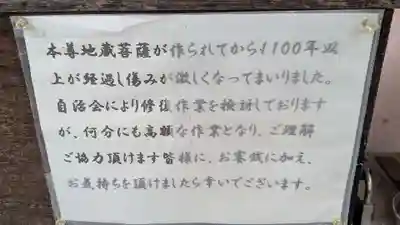 本尊地蔵菩薩が作られてから1100年以
上が経過し傷みが激しくなってまいりました。
自治会により修復作業を検討しております
が、何分にも高額な作業となり、ご理解
ご協力頂けます皆様に、お賽銭に加え、
お気持ちを頂けましたら幸いでございます。